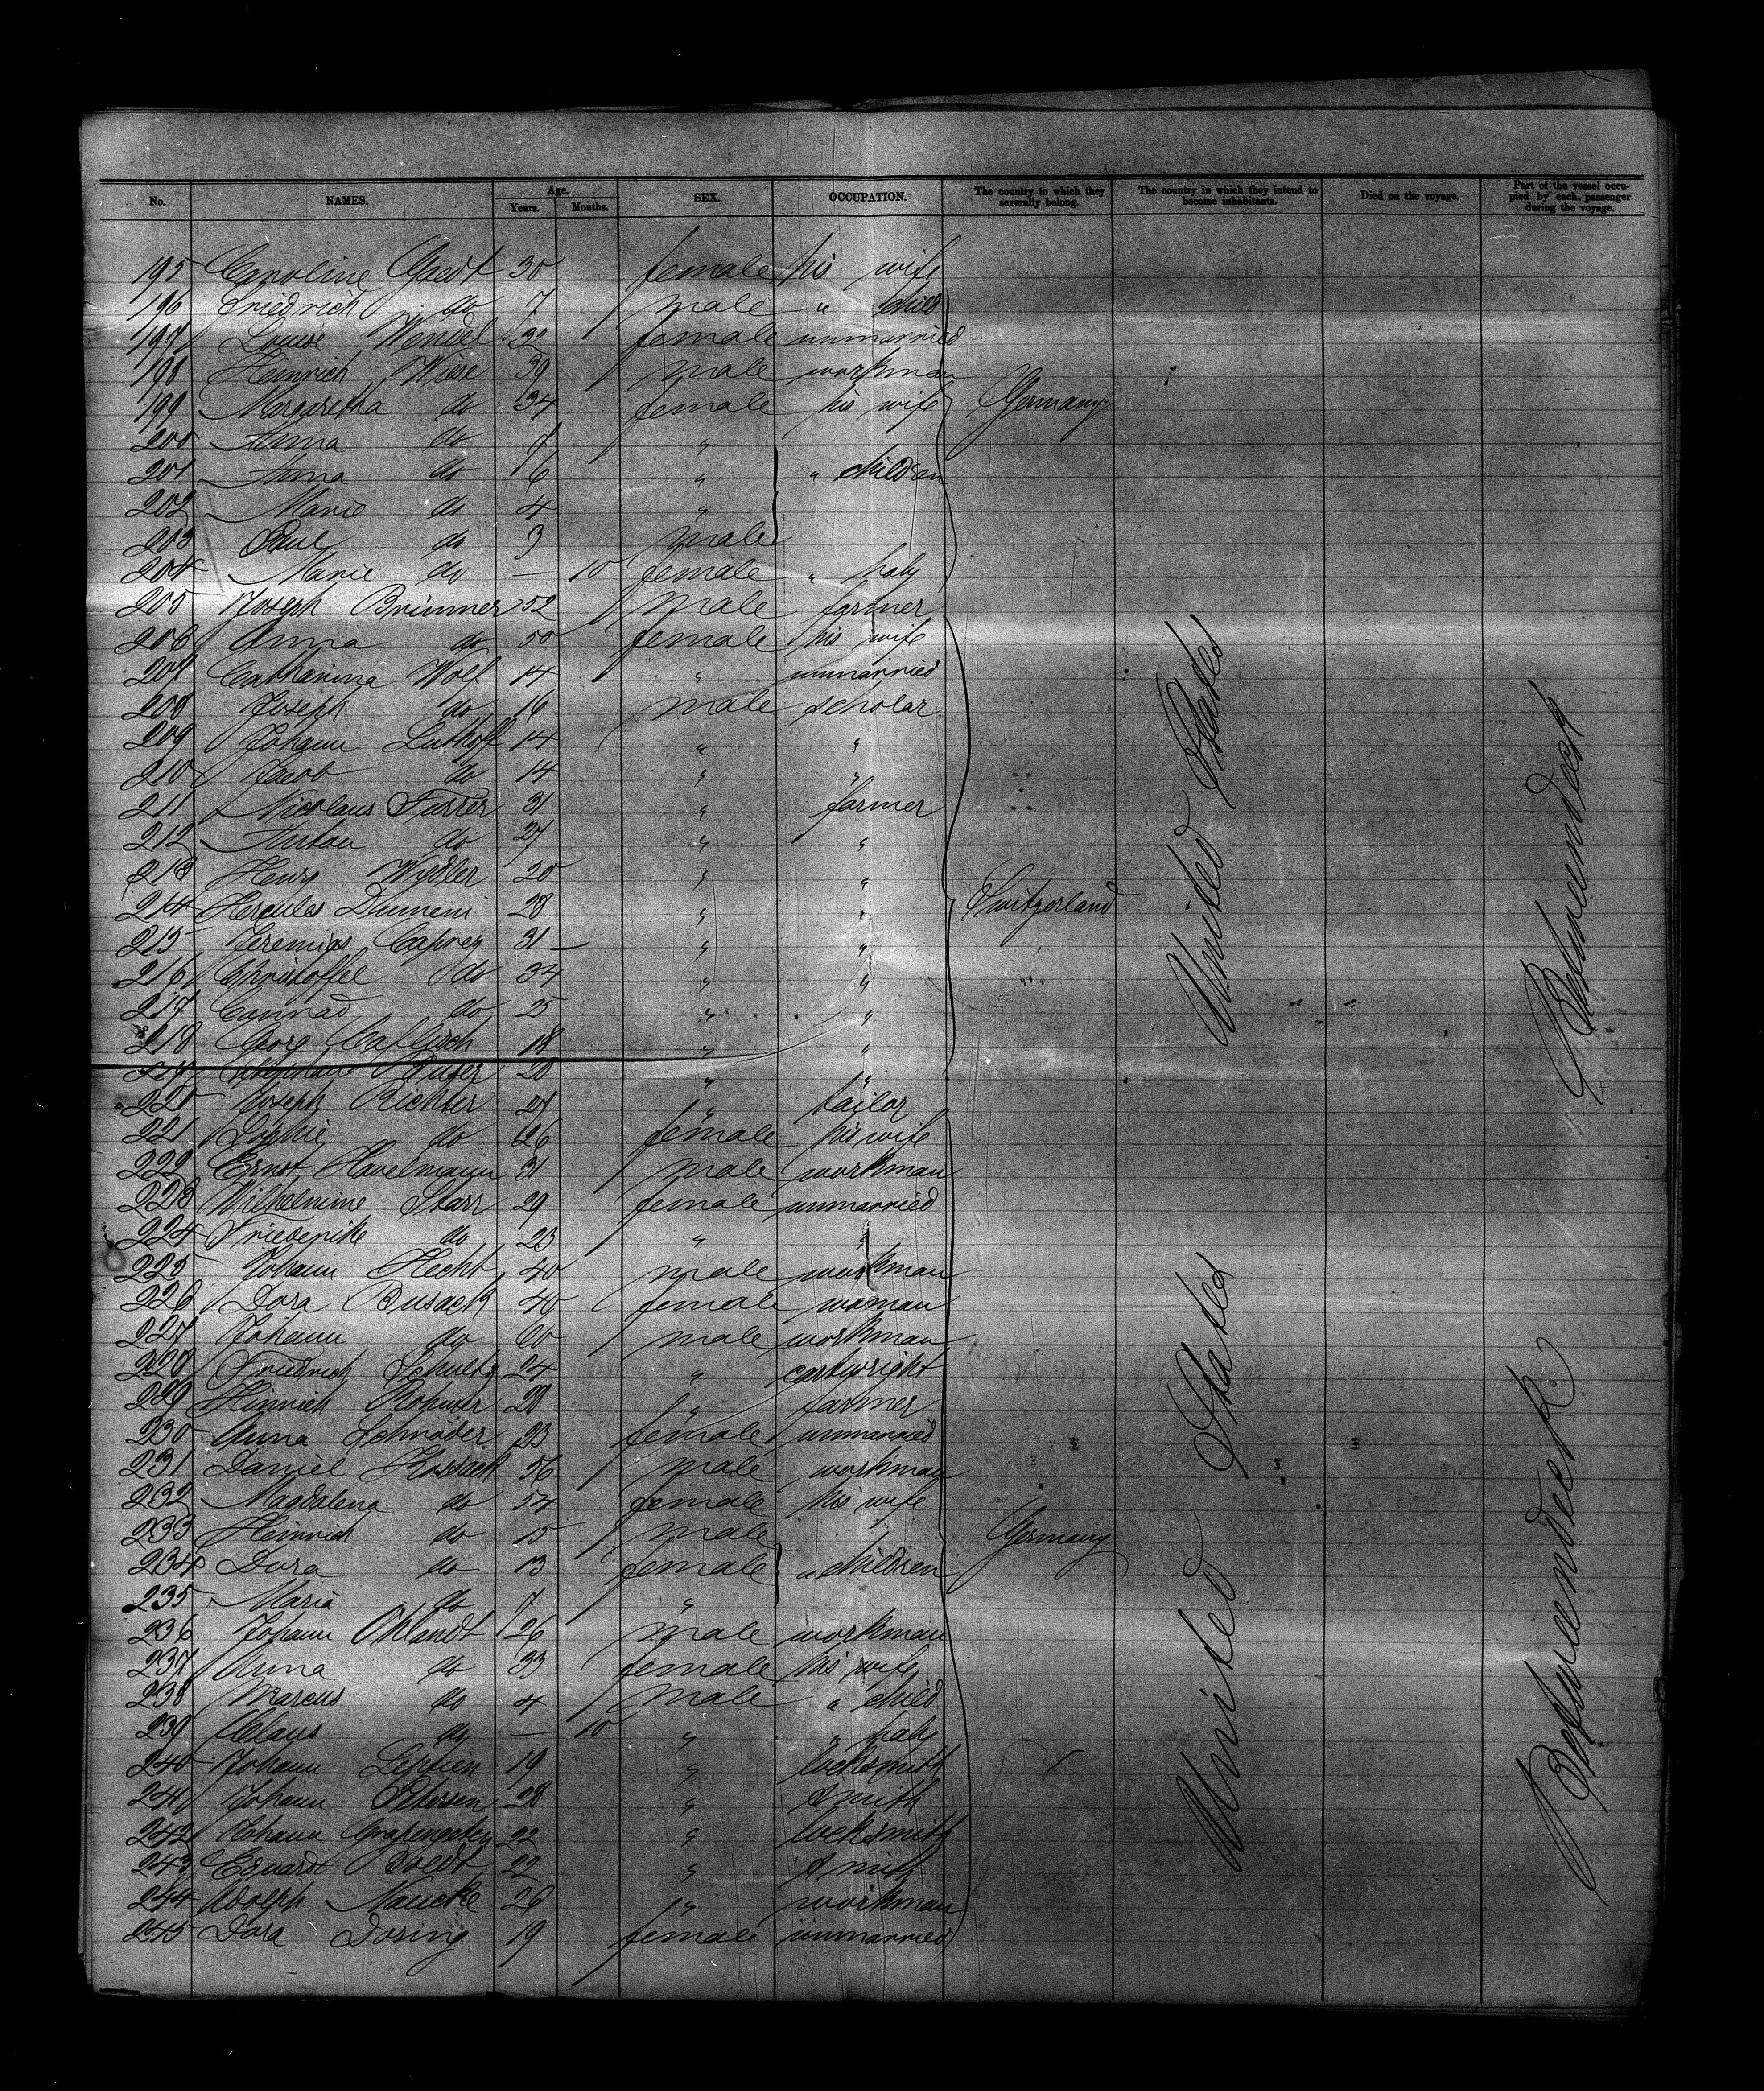 No. NAMES. Age. Years. Months. SEX. OCCUPATION. The country to which they severally belong. The country in which they intend to become inhabitants. Died on the voyage. Part of the vessel occupied by each passenger during the voyage.
195 Caroline 30 female his wife
196 Friedrich do 7 male " child
197 Louise Wendel 32 female unmarried
198 Heinrich Wiese 39 male workman
199 Margaretha do 34 female his wife Germany
200 do 7 "
201 Anna do 6 " " children
202 Marie do 4 "
203 Paul do 3 male
204 Marie do — 10 female " baby
205 Joseph Brimmer 52 male farmer
206 Anna do 50 female his wife
207 Catharina Wolf 14 " unmarried
208 Joseph do 16 male scholar
209 Johann Luthoff 14 " "
210 Jacob do 14 " "
211 Nicolaus Furrer 31 " farmer
212 Anton do 27 " "
213 Henry Wydler 20 " "
214 Hercules 28 " " Switzerland United States Betweendeck
215 Jeremias Caprez 31 — " "
216 Christoffel do 34 " "
217 Conrad do 25 " "
218 Georg Caflisch 18 " "
219 28 " "
220 Joseph Richter 27 " tailor
221 Sophie do 26 female his wife
222 Ernst Havelmann 31 male workman
223 Wilhelmine Starr 29 female unmarried
224 Friederike do 23 " "
225 Johann Hecht 40 male workman
226 Dora Busack 40 female woman
227 Johann do 60 male workman
228 Friedrich Schultz 24 " cartwright
229 Hinrich 28 " farmer
230 Anna Schröder 23 female unmarried
231 Daniel Kossack 56 male workman
232 Magdalena do 54 female his wife
233 Heinrich do 15 male Germany
234 Dora do 13 female " children
235 Maria do 7 "
236 Johann Ohlandt 26 male workman
237 Anna do 33 female his wife
238 Marcus do 4 male " child
239 Claus do — 10 " " baby
240 Johann Leptien 19 " locksmith
241 Johann Petersen 28 " smith
242 Johann 22 " locksmith
243 Eduard Boldt 22 " smith
244 Adolph Naucke 26 " workman
245 Dora Dosing 19 female unmarried
United States Betweendeck